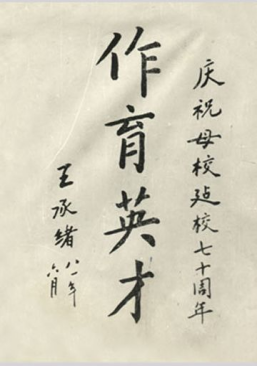 庆祝母校建校七十周年
作育英才
王承绪
八一年
六月